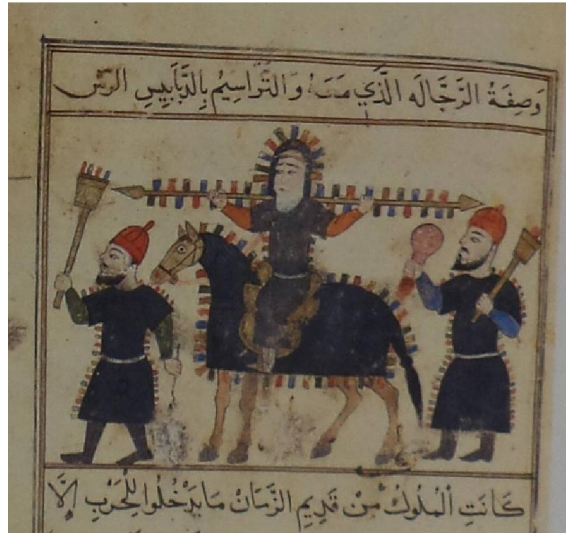 وَصِفَةُ الرَّجَّالَه الَّذِي مَعَهُ وَالتَّرَاسِيمُ بِالدَّبَابِيسِ
كَانَتِ الْمُلُوكْ مِنْ قَدِيمِ الزَّمَانْ مَا يَدْخُلُوا لِلْحَرْبِ إلَّا